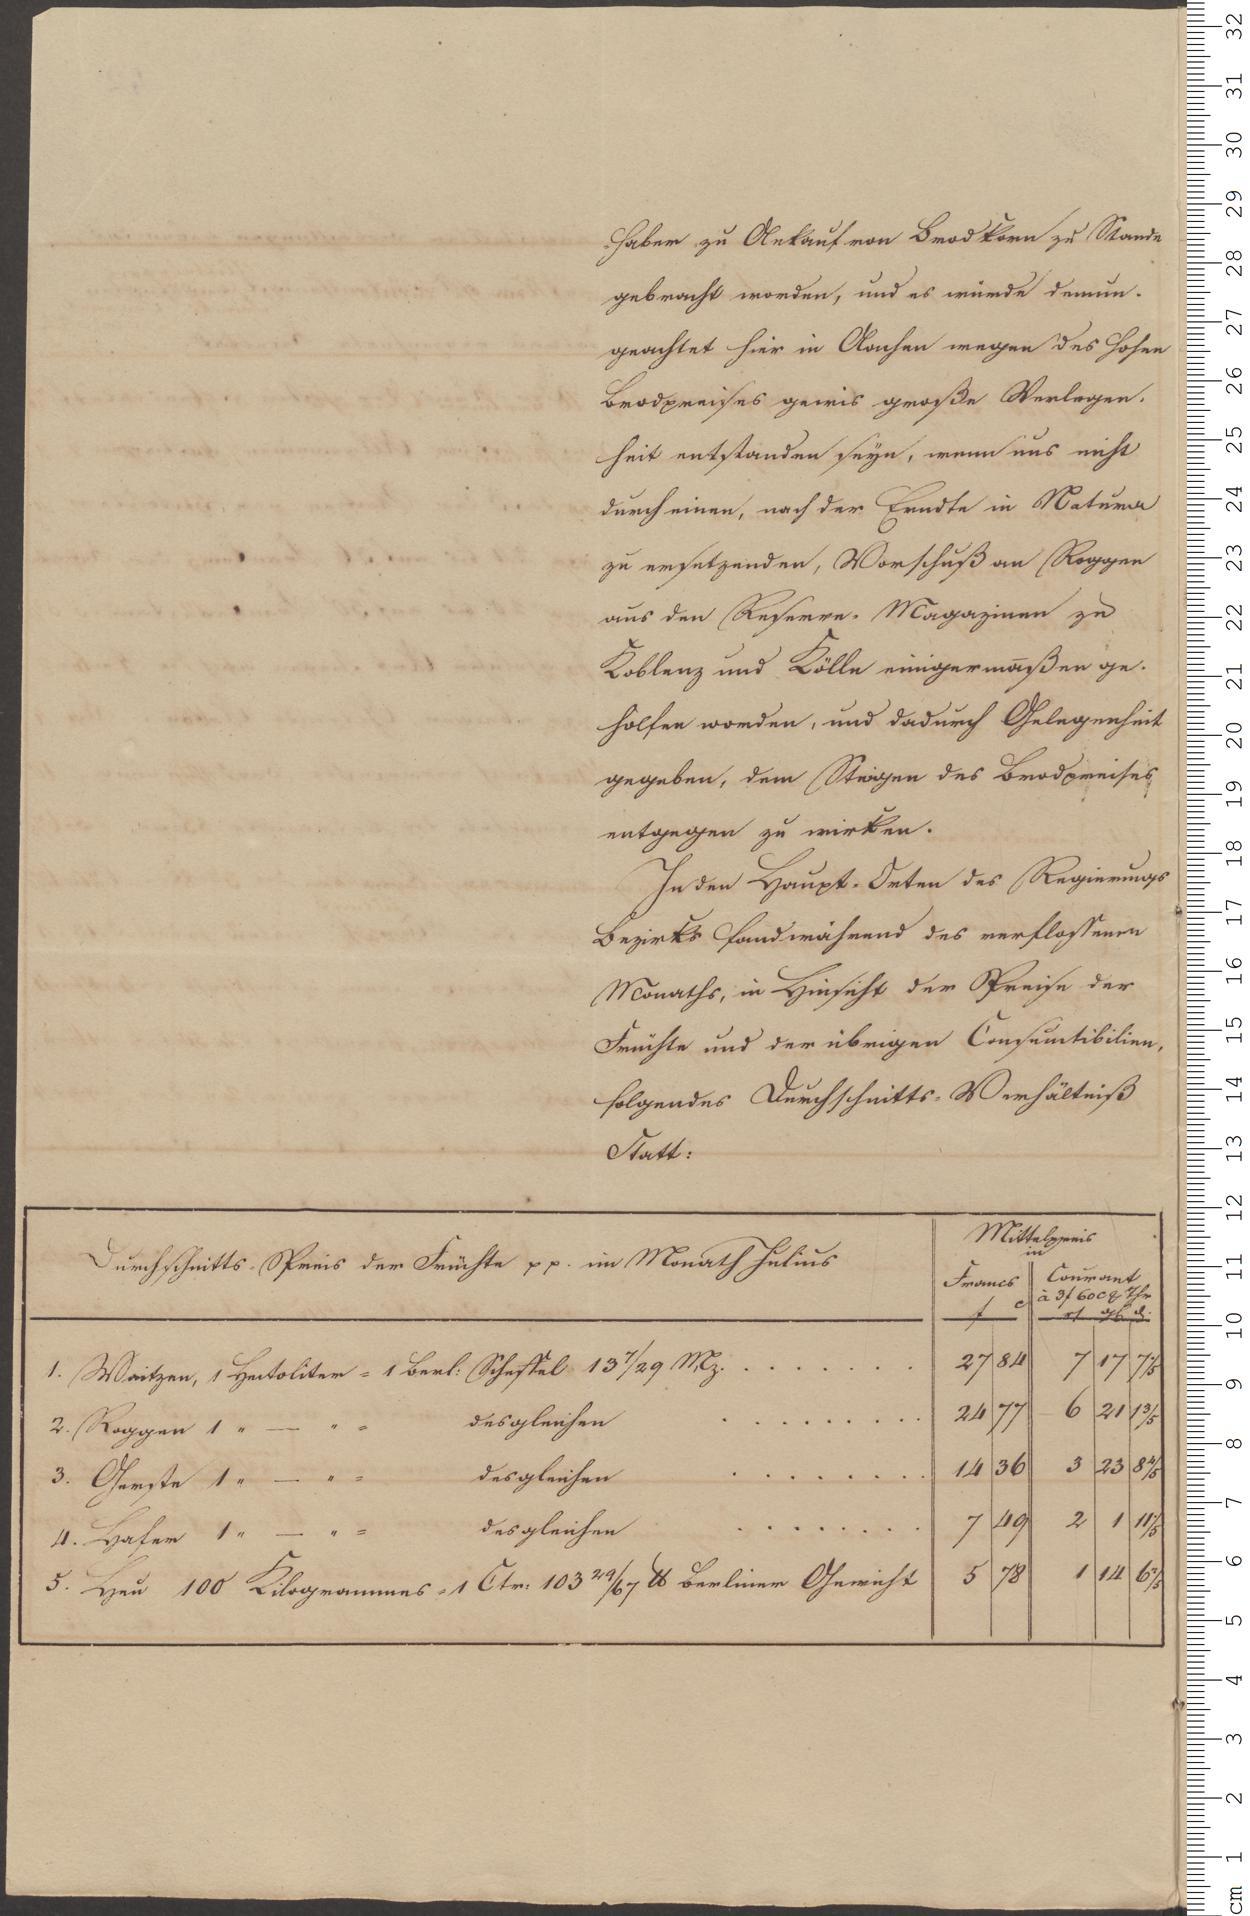 haber zu Ankauf von Brodkorn zu Stande
gebracht worden, und es würde demun-
geachtet hier in Aachen wegen des hohen
Brodpreises gewis große Verlegen-
heit entstanden seyn, wenn uns nicht
durch einen, nach der Erndte in Natura
zu ersetzenden, Vorschuß an Roggen
aus den Reserve-Magazinen zu
Koblenz und Kölln einigermaßen ge-
holfen worden, und dadurch Gelegenheit
gegeben, dem Steigen des Brodpreises
entgegen zu wirken.
In den Haupt-Orten des Regierungs
Bezirks fand während des verflossenen
Monaths, in Hinsicht der Preise der
Früchte und der übrigen Consumtibilien,
folgendes Durchschnitts-Verhältniß
Statt:
Durchschnitts-Preis der Früchte pp. im Monath Julius
Mittelpreis
in
Francs
f c
Courant
à 3f 60c Thr
rt gß d.
1. Waitzen, 1 Hectoliter = 1 Berl: Scheffel 13 7/29 Mz. . . . . . . . 27 84 7 17 7 1/5
2. Roggen 1 " — " = desgleichen . . . . . . . . 24 77 6 21 1 3/5
3. Gerste 1 " — " = desgleichen . . . . . . . . 14 36 3 23 8 4/5
4. Hafer 1 " — " = desgleichen . . . . . . . . 7 49 2 1 11 1/5
5. Heu 100 Kilogrammes = 1 Ctr: 103 29/67 ℔ Berliner Gewicht 5 78 1 14 6 2/5
cm 1 2 3 4 5 6 7 8 9 10 11 12 13 14 15 16 17 18 19 20 21 22 23 24 25 26 27 28 29 30 31 32